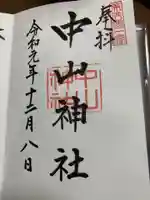 奉拝
中山神社
令和元年十二月八日